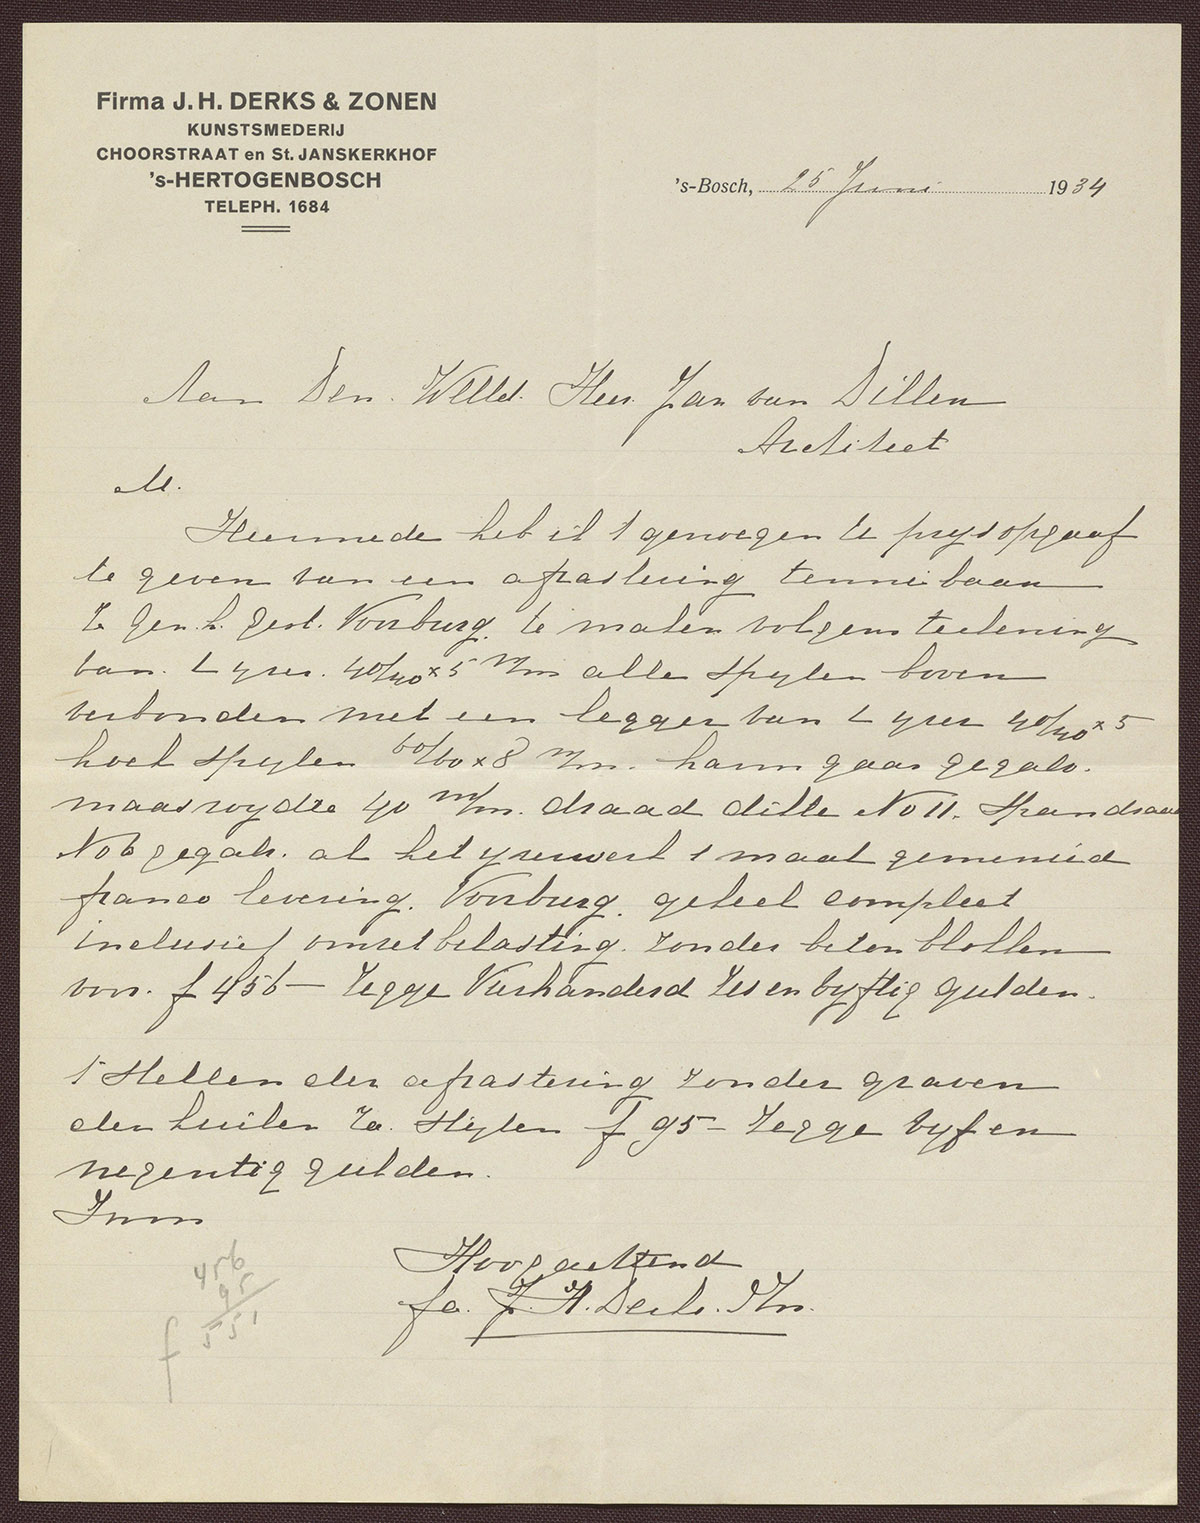 Firma J.H. DERKS & ZONEN
KUNSTSMEDERIJ
CHOORSTRAAT en St. JANSKERKHOF
's-HERTOGENBOSCH
TELEPH. 1684
's-Bosch, 25 Juni 1934
Aan Den. WelEd. Heer. Jan van Dillen
Architect
M.
Hiermede heb ik 't genoegen U prysopgaaf
te geven van een afrastering tennisbaan
te Gen. h. Gest. Voorburg. te maken volgens teekening
van. L yzer. 40/40 x 5 m/m alle stylen boven
verbonden met een legger van L yzer 40/40 x 5
hoek stylen 60/60 x 8 m/m. harmgaas gegalv.
maaswydte 40 m/m. draad dikte No 11. Spandraad
No 6 gegalv. al het yzerwerk 1 maal gemenied
franco levering. Voorburg. geheel compleet
inclusief omzetbelasting. zonder beton blokken
voor. f 456 — Zegge Vierhonderd Zes en vyftig gulden.
't Stellen der afrastering zonder graven
der kuilen stylen f 95 — Zegge vyf en
negentig gulden.
Hoogachtend
fa. J. H. Derks. Zn.
456
95
f 551